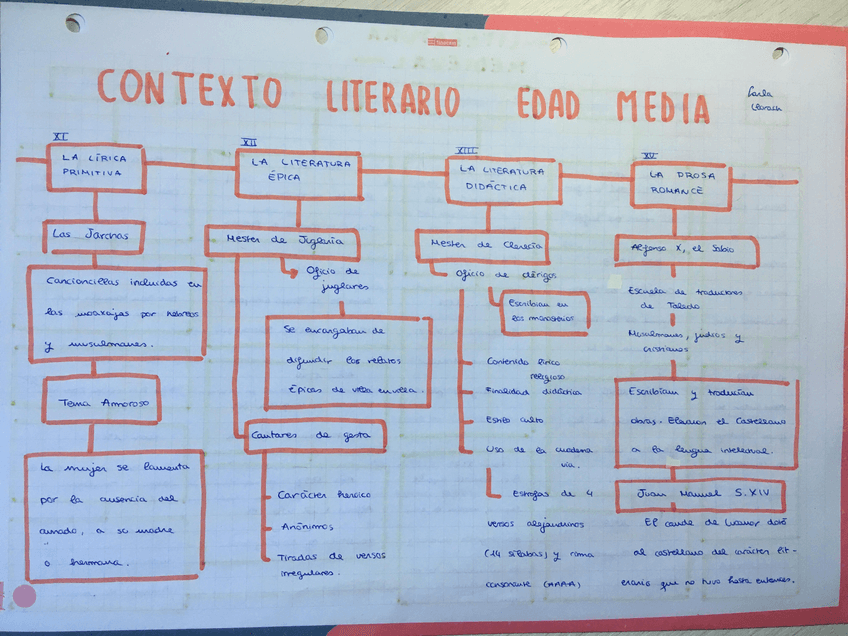 CONTEXTO LITERARIO EDAD MEDIA
Carla
XI
LA LÍRICA
PRIMITIVA
Las Jarchas
Cancioncillas incluidas en
las moaxajas por hebreos
y musulmanes.
Tema Amoroso
La mujer se lamenta
por la ausencia del
amado, a su madre
o hermana.
XII
LA LITERATURA
ÉPICA
Mester de Juglaría
Oficio de
juglares
Se encargaban de
difundir los relatos
épicos de villa en villa.
Cantares de gesta
Carácter heroico
Anónimos
Tiradas de versos
irregulares.
XIII
LA LITERATURA
DIDÁCTICA
Mester de Clerecía
Oficio de clérigos
Escribían en
los monasterios
Contenido lírico
religioso
Finalidad didáctica
Estilo culto
Uso de la cuaderna
vía.
Estrofas de 4
versos alejandrinos
(14 sílabas) y rima
consonante (AAAA)
XV
LA PROSA
ROMANCE
Alfonso X, el Sabio
Escuela de traductores
de Toledo
Musulmanes, judíos y
cristianos
Escribían y traducían
obras. Elevaron el Castellano
a la lengua intelectual.
Juan Manuel S.XIV
El conde de Lucanor dotó
al castellano del carácter lit-
erario que no tuvo hasta entonces.